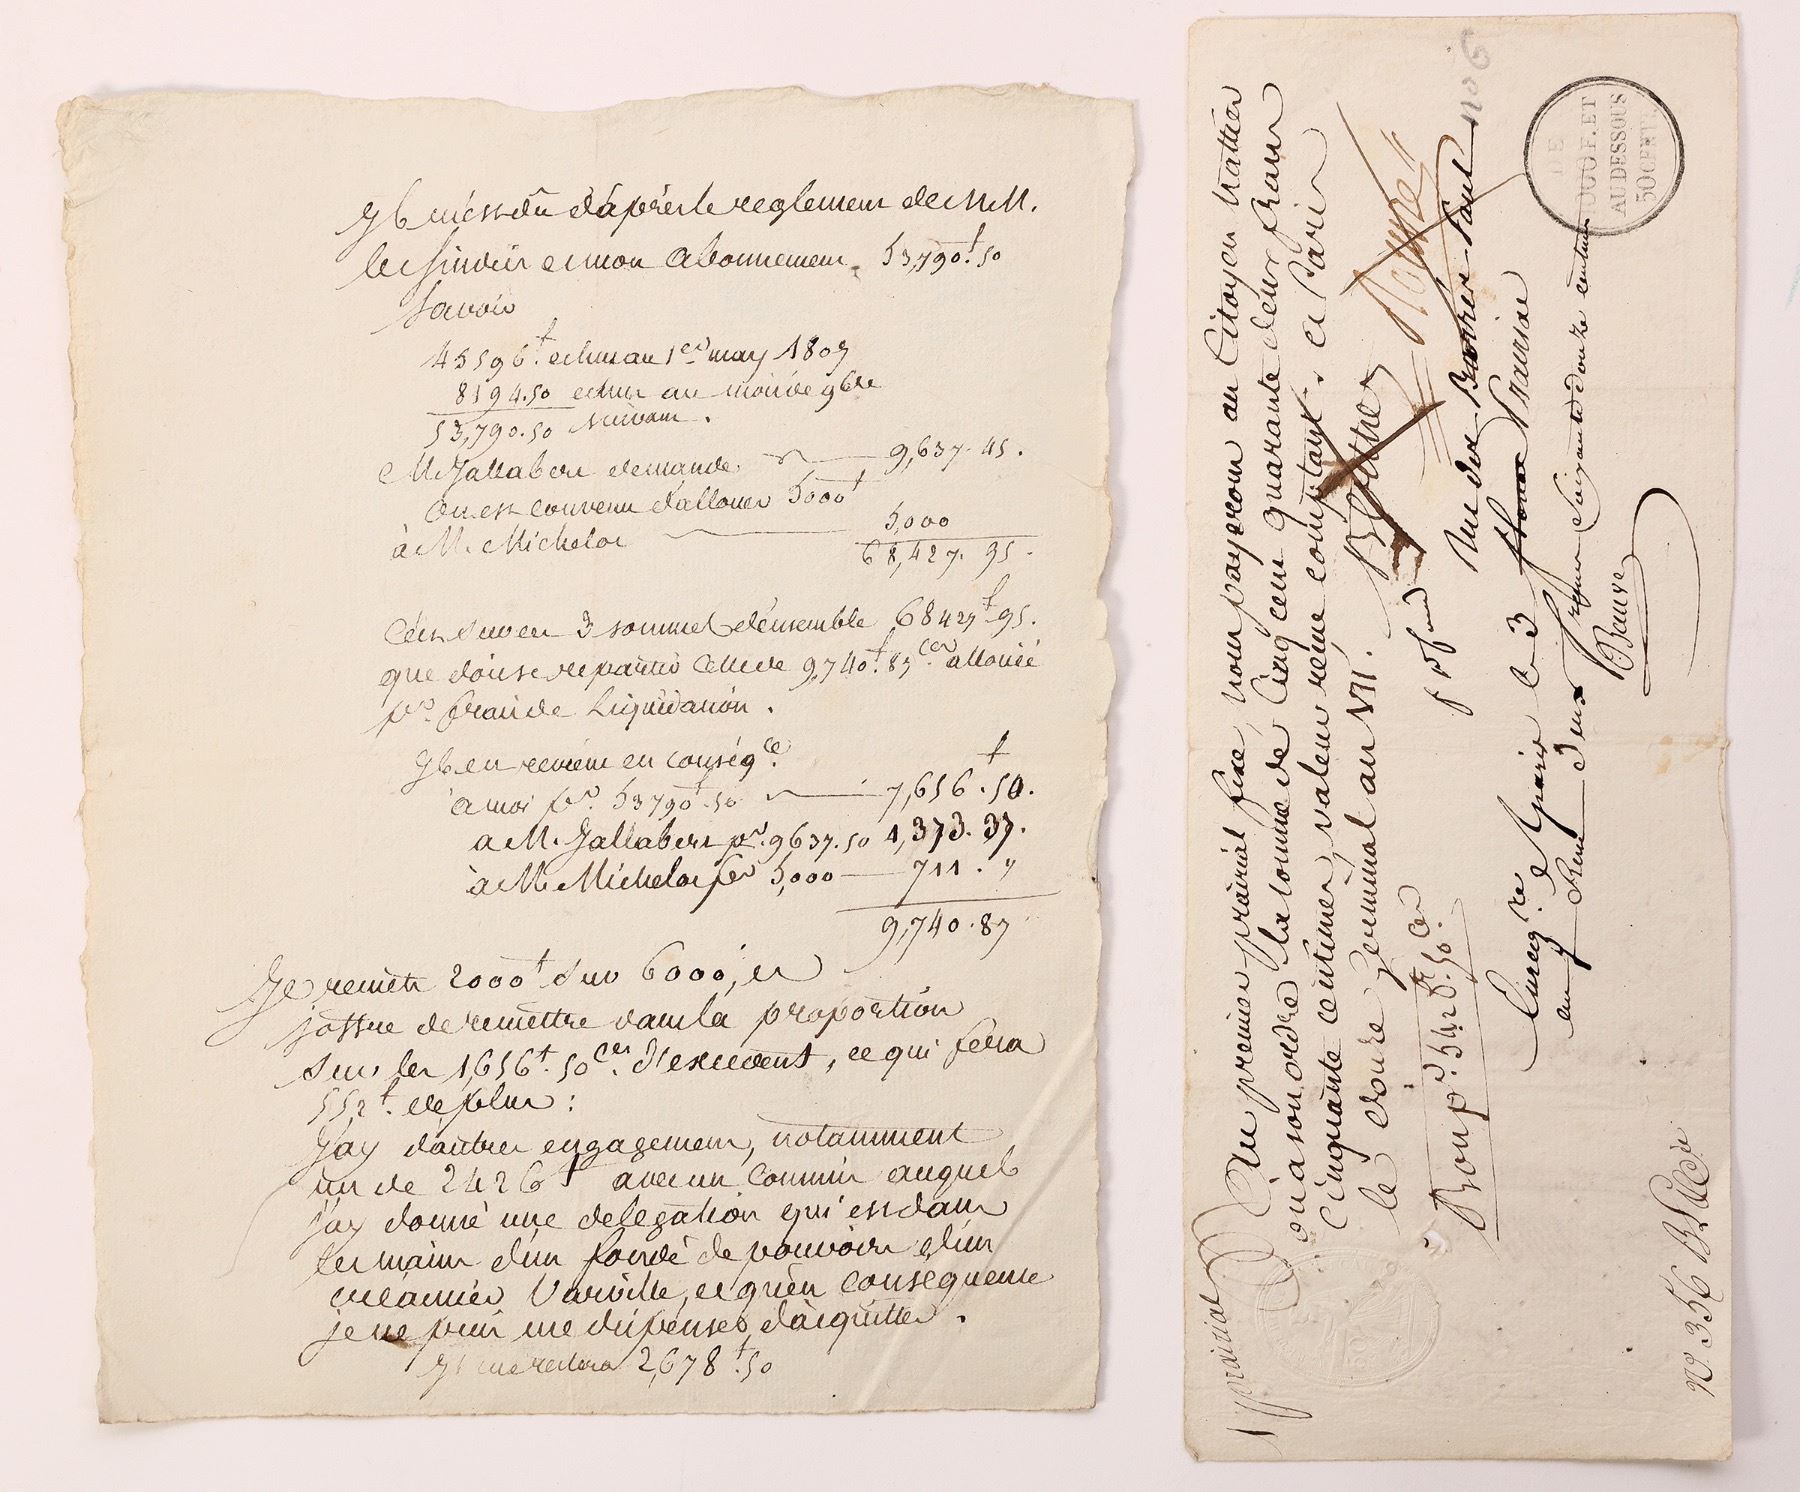 Il m'est dû d'après le reglement de M.M.
les sindics et mon abonnement. 53,790.f50
Savoir
45596.f echus au 1er may 1807
8194.50 echus au mois de 9bre
53,790.50 suivant.
M. Jallabert demande 9,637.45.
On est convenu d'allouer 5000f
à M. Michelot 5,000
68,427.95.
C'est sur ces 3 sommes d'ensemble 68427f.95.
que doit se repartir celle de 9,740f.87ces allouée
pr. frais de Liquidation.
Il en revient en conségce. f
à moi pr. 53790f.50 7,656.50.
à M. Jallabert pr. 9637.50 1,373.37.
à M. Michelot pr 5,000 711."
9,740.87
Je remets 2000f sur 6000, et
j'offre de remettre dans la proportion
sur les 1,656f.50ces. d'excedent, ce qui fera
552f. de plus:
J'ay d'autres engagemens, notamment
un de 2426f avec un commis auquel
j'ay donné une delegation qui est dans
les mains d'un fondé de pouvoirs d'un
créancier Varville, et qu'en conséquence
je ne puis me dispenser d'acquitter.
Il me restera 2,678f.50
1 prairial
Au premier prairial fixe, nous payerons au Citoyen
ou a son ordre la somme de Cinq cent quarante deux francs
cinquante centimes, valeur reçue comptant. a Paris
le douze germinal an VII.
Bon pr. 542f.50ces
Rue des Barres Paul no 6
Enregre. à Paris le 3 Prairial
an Sept Reçu deux francs Soixante douze centimes
Beauve
DE
1000F. ET
AU DESSOUS
500FR.
no. 356